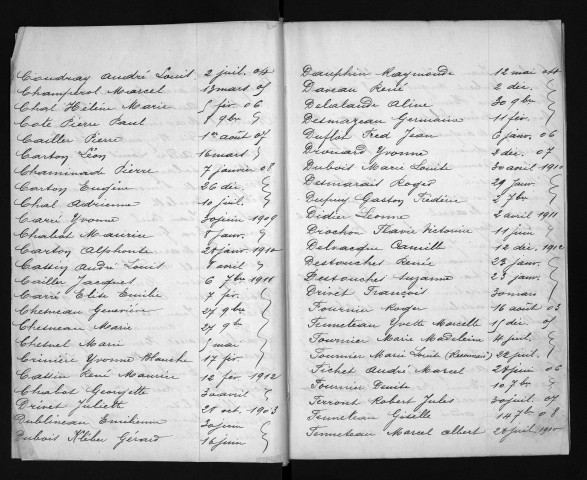 Coudray André Louis 2 juil. 04
Champerol Marcel 13 mars 05
Chat Hélène Marie 5 fév. 06
Cote Pierre Paul 8 9bre }
Cailler Pierre 1er août 07
Carton Léon 16 mars }
Chaminard Pierre 7 janvier 08
Carton Eugène 26 déc. }
Chat Adrienne 10 juil. }
Carré Yvonne 30 juin 1909
Chabot Maurice 8 janv. }
Carton Alphonse 28 janv. 1910
Cassin André Louis 8 avril }
Cailler Jacques 6 7bre 1911
Carré Elise Emilie 7 fév. }
Chesneau Geneviève 27 9bre }
Chesneau Marie 27 9bre }
Chesnel Marie 5 mai }
Crinière Yvonne Blanche 17 fév. }
Cassin René Maurice 12 fév. 1912
Chabot Georgette 30 avril }
Drivet Juliette 28 oct. 1903
Dublineau Emilienne 30 juin }
Dubois Kléber Gérard 16 juin }
Dauphin Raymonde 12 mai 04
Daveau René 2 déc. }
Delalande Aline 30 9bre }
Desmazeau Germaine 11 fév. }
Duflon Fred Jean 6 janv. 06
Drouard Yvonne 2 déc. 07
Dubois Marie Louise 30 avril 1910
Desmarais Roger 29 janv. }
Dupuy Gaston Frédéric 2 7bre }
Didier 2 avril 1911
Drochon Flavie Victorine 11 juin }
Delvacque Camille 12 déc. 1912
Destouches Renée 23 janv. }
Destouches Suzanne 23 janv. }
Drivet François 30 mars }
Fournier Roger 16 août 03
Fenneteau Yvette Marcelle 15 déc. 05
Fournier Marie Madeleine 4 juil. }
Fournier Marie Louise 22 juil. }
Fichet André Marcel 28 juin 06
Fournier Denise 10 7bre }
Ferront Robert Jules 30 juil. 07
Fenneteau Giselle 14 7bre 08
Fenneteau Marcel Albert 28 juil. 1910